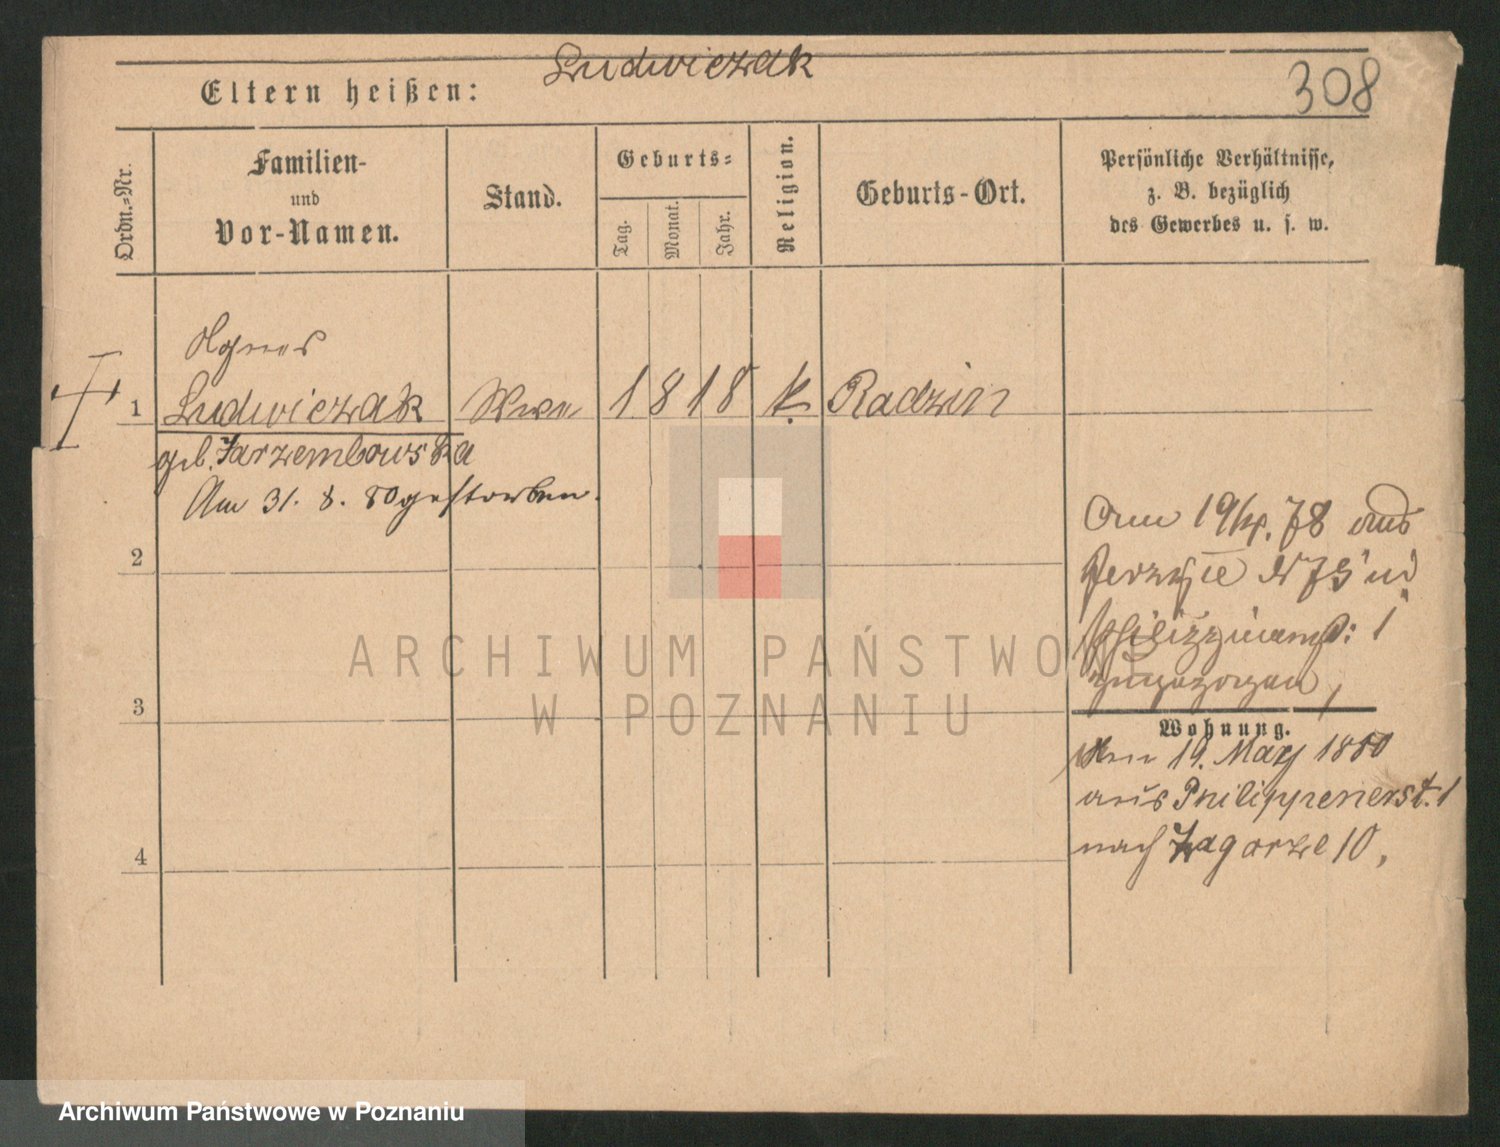 Ludwiczak
Eltern heißen:
308
Ordn.=Nr.
Familien-
und
Vor-Namen.
Stand.
Geburts=
Tag.
Monat.
Jahr.
Religion.
Geburts-Ort.
Persönliche Verhältnisse,
z. B. bezüglich
des Gewerbes u. s. w.
Agnes
1 Ludwiczak Wwe 1818 k. Radzin
geb. Jarzembowska
Am 31. 8. 80 gestorben.
2
3
4
19/4. 78 aus
N 75
1
zugezogen,
Wohnung.
Am 19. May 1880
aus Philippenerst. 1
nach Zagorze 10,
ARCHIWUM PAŃSTWO
W POZNANIU
Archiwum Państwowe w Poznaniu